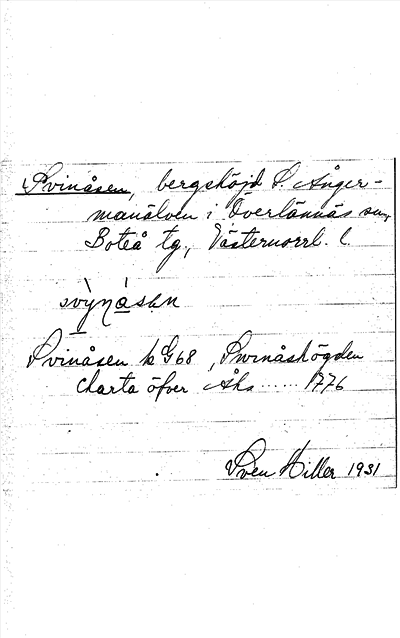 Svinåsen, bergshöjd S. Ånger-
manälven i Överlännäs sn,
Boteå tg, Västernorrl. l.
Svinåsen k G68, Swinåshögden
Charta öfver Åhs ...... 1776
Sven Hiller 1931